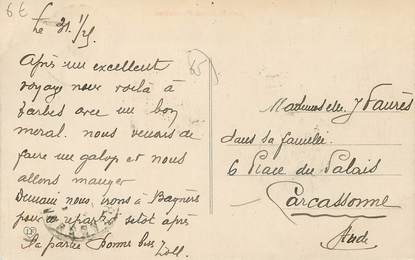 6€
Le 31/1/25.
Après un excellent
voyage nous voilà à
Tarbes avec un bon
moral. nous venons de
faire un galop et nous
allons manger
Demain nous irons à Bagnères
pour repartir sitot après
la partie Bonne bise
65
Mademoiselle J Faurès
dans sa famille.
6 Place du Palais
Carcassonne
Aude